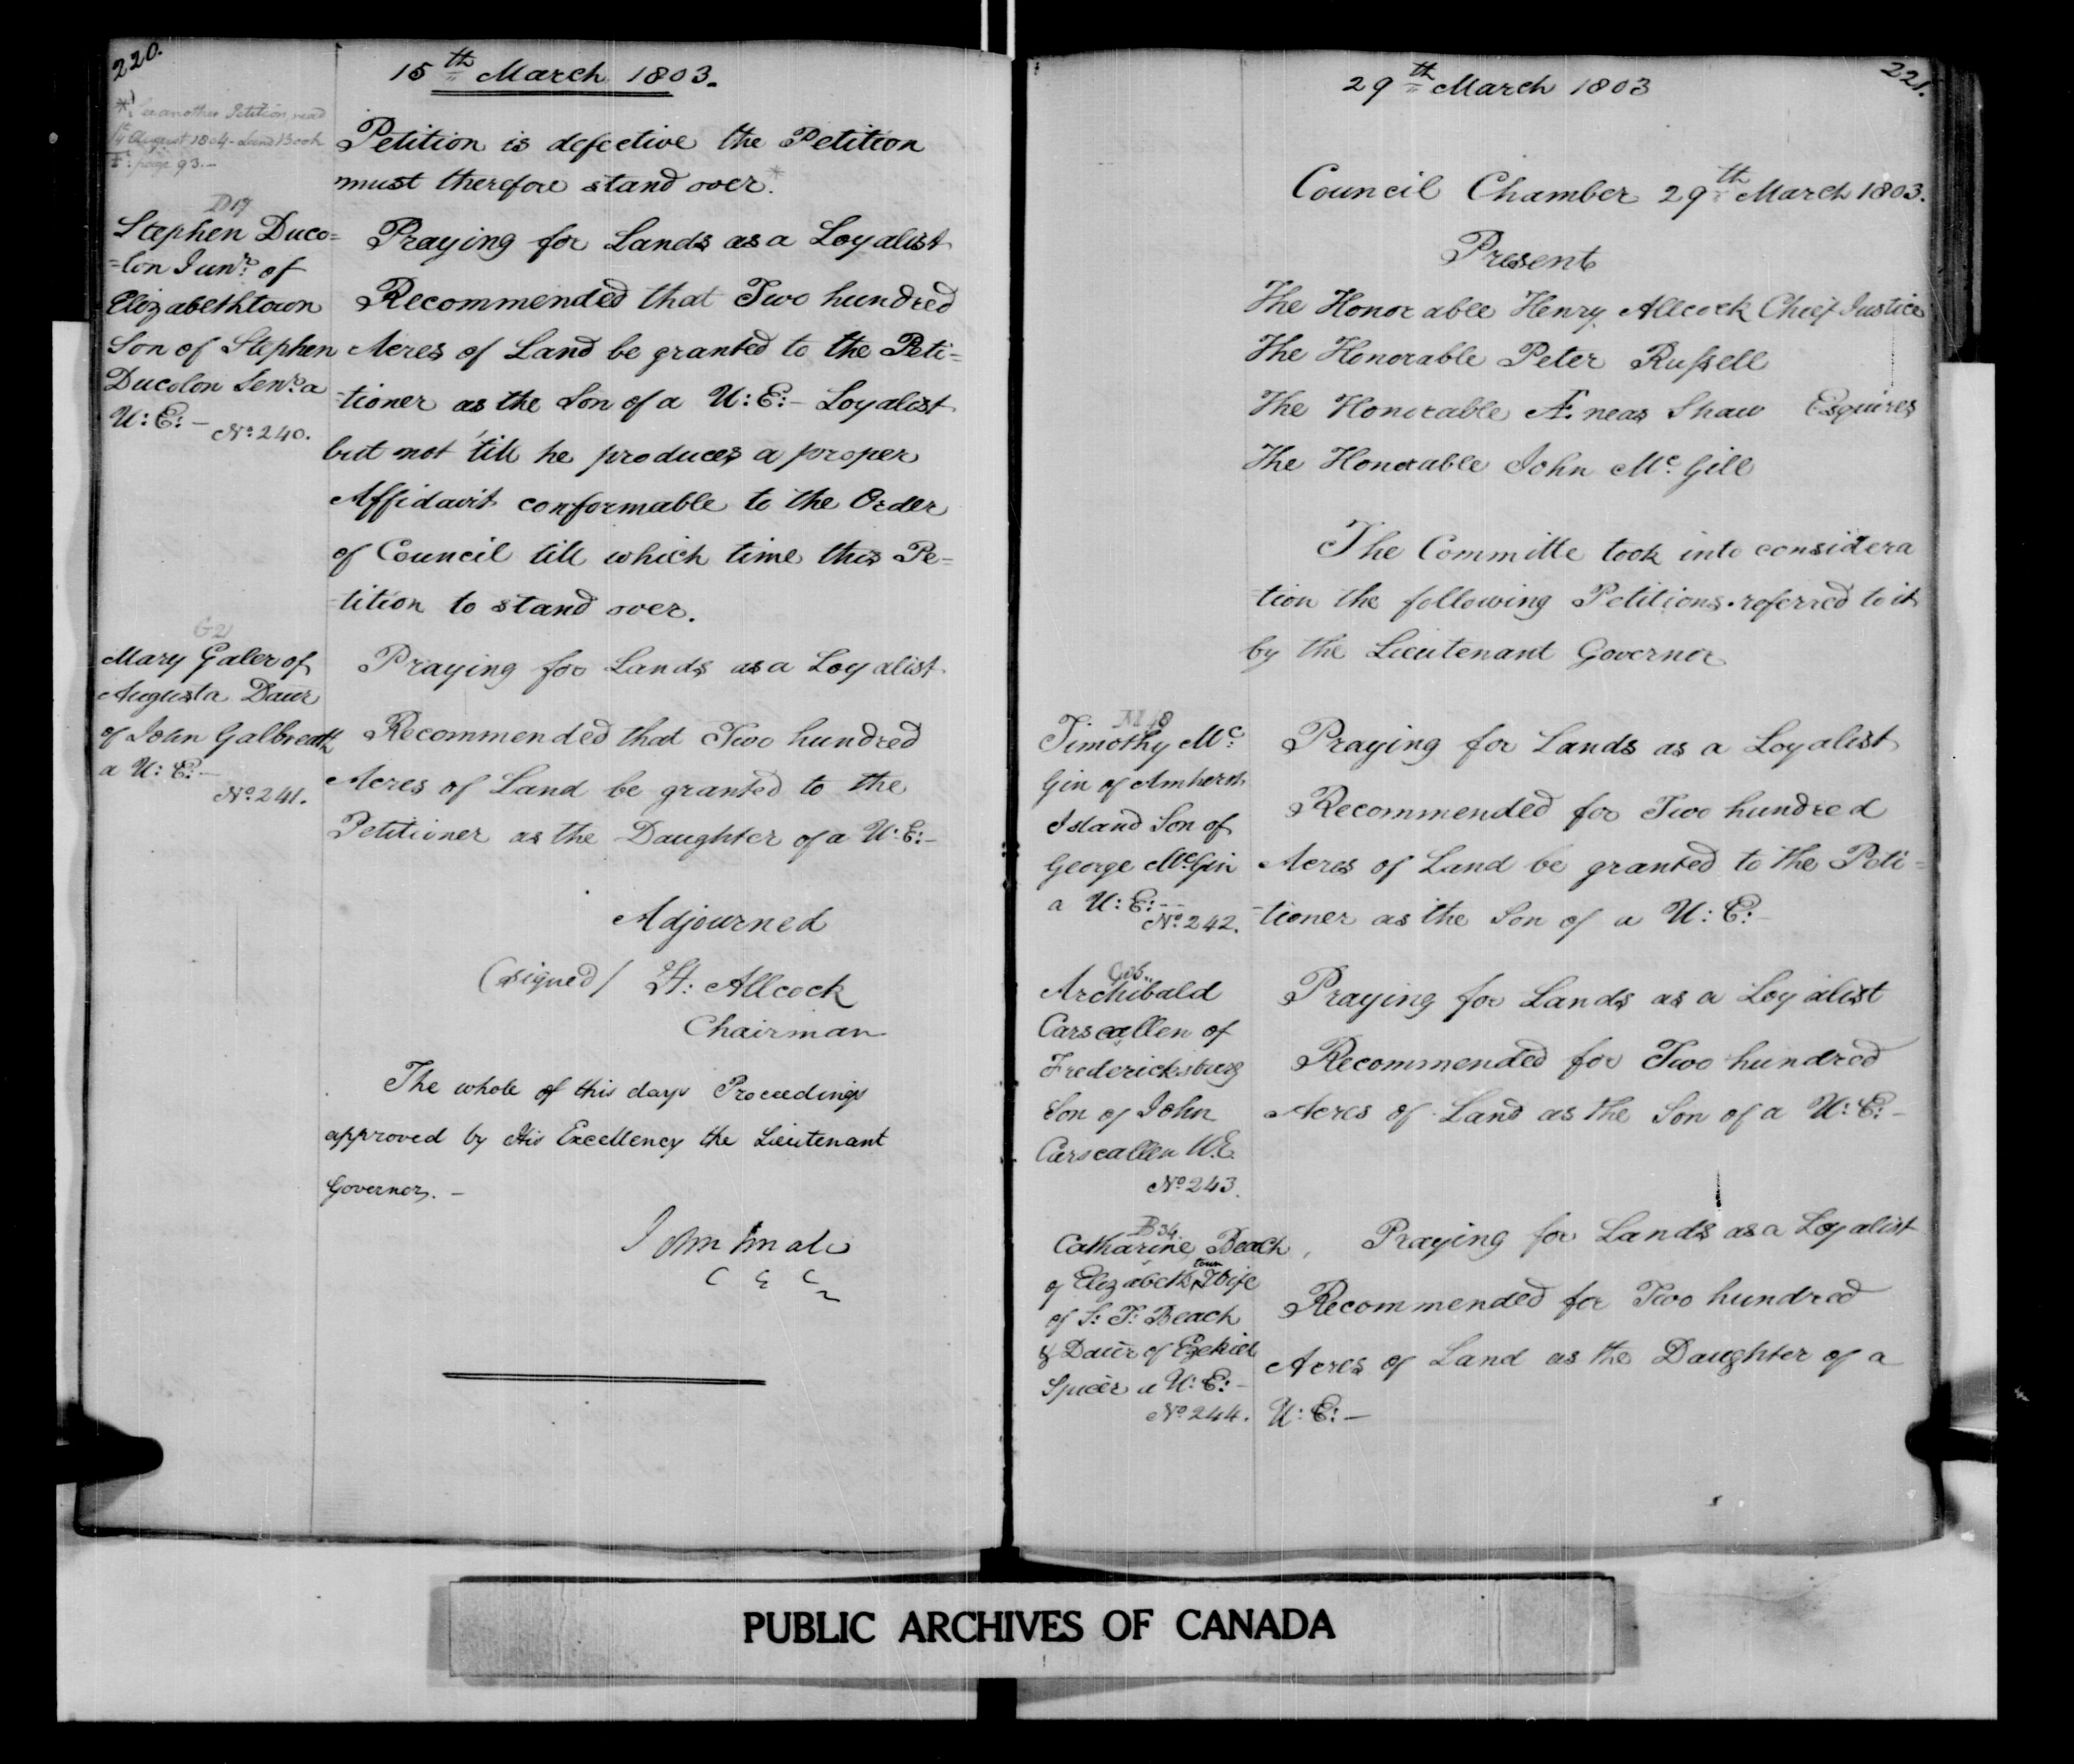 220.
15th March 1803.
*) See another Petition read
1st August 1804 - Land Book
F: page 93. -
Petition is defective the Petition
must therefore stand over.*
D17
Stephen Duco=
=lon Junr. of
Elizabethtown
Son of Stephen
Ducolon Senr. a
U: E: -
No. 240.
Praying for Lands as a Loyalist
Recommended that Two hundred
Acres of Land be granted to the Peti=
=tioner as the Son of a U: E:- Loyalist
but not 'till he produces a proper
Affidavit conformable to the Order
of Council till which time this Pe=
=tition to stand over.
G21
Mary Galer of
Augusta Daur
of John Galbreath
a U: E: -
No. 241.
Praying for Lands as a Loyalist
Recommended that Two hundred
Acres of Land be granted to the
Petitioner as the Daughter of a U: E: -
Adjourned
(signed/ H: Allcock
Chairman
The whole of this days Proceedings
approved by His Excellency the Lieutenant
Governor. -
John Small
C E C
221.
29th March 1803
Council Chamber 29th March 1803.
Present
The Honorable Henry Allcock Chief Justice
The Honorable Peter Russell
The Honorable Æneas Shaw Esquires
The Honorable John Mc. Gill
The Committe took into considera
tion the following Petitions referred to it
by the Lieutenant Governor
M18
Timothy Mc.
Gin of Amherst
Island Son of
George McGin
a U: E: -
No. 242.
Praying for Lands as a Loyalist
Recommended for Two hundred
Acres of Land be granted to the Peti=
=tioner as the Son of a U: E: -
Archibald
Carscallen of
Fredericksburg
Son of John
Carscallen U.E.
No. 243.
Praying for Lands as a Loyalist
Recommended for Two hundred
Acres of Land as the Son of a U: E: -
B34
Catharine Beach,
of Elizabethtown Wife
of S: T: Beach
& Daur of Ezekiel
Spicer a U: E: -
No. 244.
Praying for Lands as a Loyalist
Recommended for Two hundred
Acres of Land as the Daughter of a
U: E: -
PUBLIC ARCHIVES OF CANADA